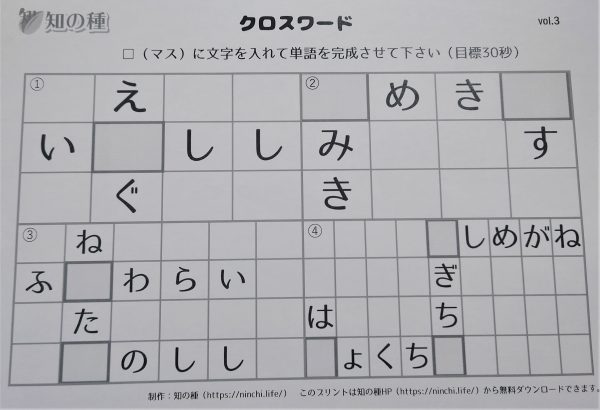 知の種
クロスワード
vol.3
□（マス）に文字を入れて単語を完成させて下さい（目標30秒）
① え
い しし
ぐ
② めき
み す
き
③ ね
ふ わらい
た
のしし
④ しめがね
ぎ
は ち
ょくち
制作：知の種（https://ninchi.life/） このプリントは知の種HP（https://ninchi.life/）から無料ダウンロードできます。